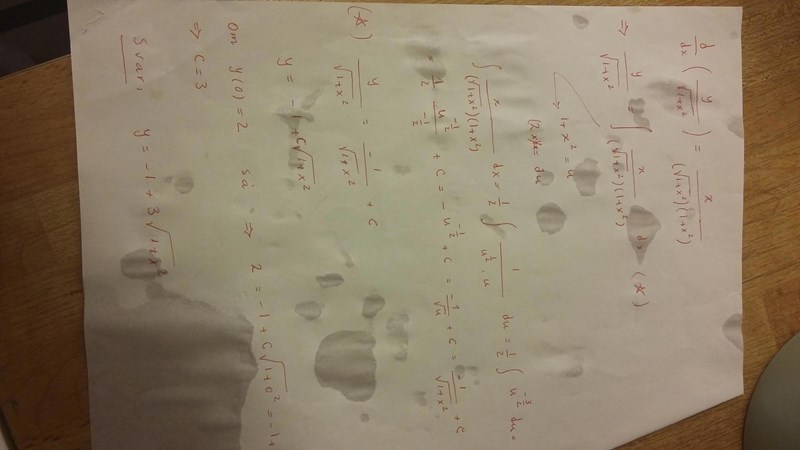 d/dx (y/√(1+x²)) = x/((√1+x²)(1+x²))
⇒ y/√(1+x²) ∫ x/((√1+x²)(1+x²)) dx (*)
→ 1+x² = u
(2x dx = du
∫ x/((√1+x²)(1+x²)) dx = 1/2 ∫ 1/(u^(1/2) · u) du = 1/2 ∫ u^(-3/2) du =
= 1/2 u^(-1/2)/(-1/2) + C = -u^(-1/2) + C = -1/√u + C = -1/√(1+x²) + C
(*) y/√(1+x²) = -1/√(1+x²) + C
y = -1 + C√(1+x²)
om y(0) = 2 så ⇒ 2 = -1 + C√(1+0²) = -1+
⇒ C = 3
Svar: y = -1 + 3√(1+x²)